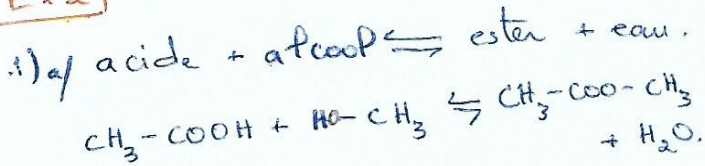 1) a/ acide + alcool ⇌ ester + eau.
CH₃-COOH + HO-CH₃ ⇌ CH₃-COO-CH₃
+ H₂O.